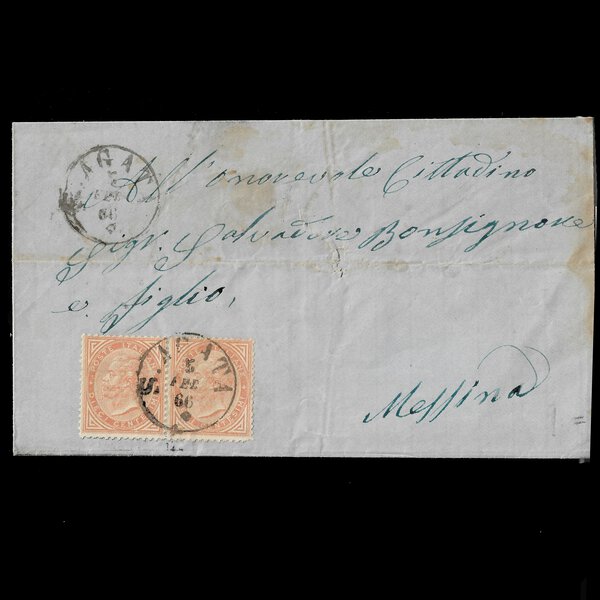 S. AGATA
5
FEB
66
All'onorevole Cittadino
Sigr. Salvadore Bonsignore
e figlio,
Messina
POSTE ITALIANE
DIECI CENTESIMI
S. AGATA
5
FEB
66